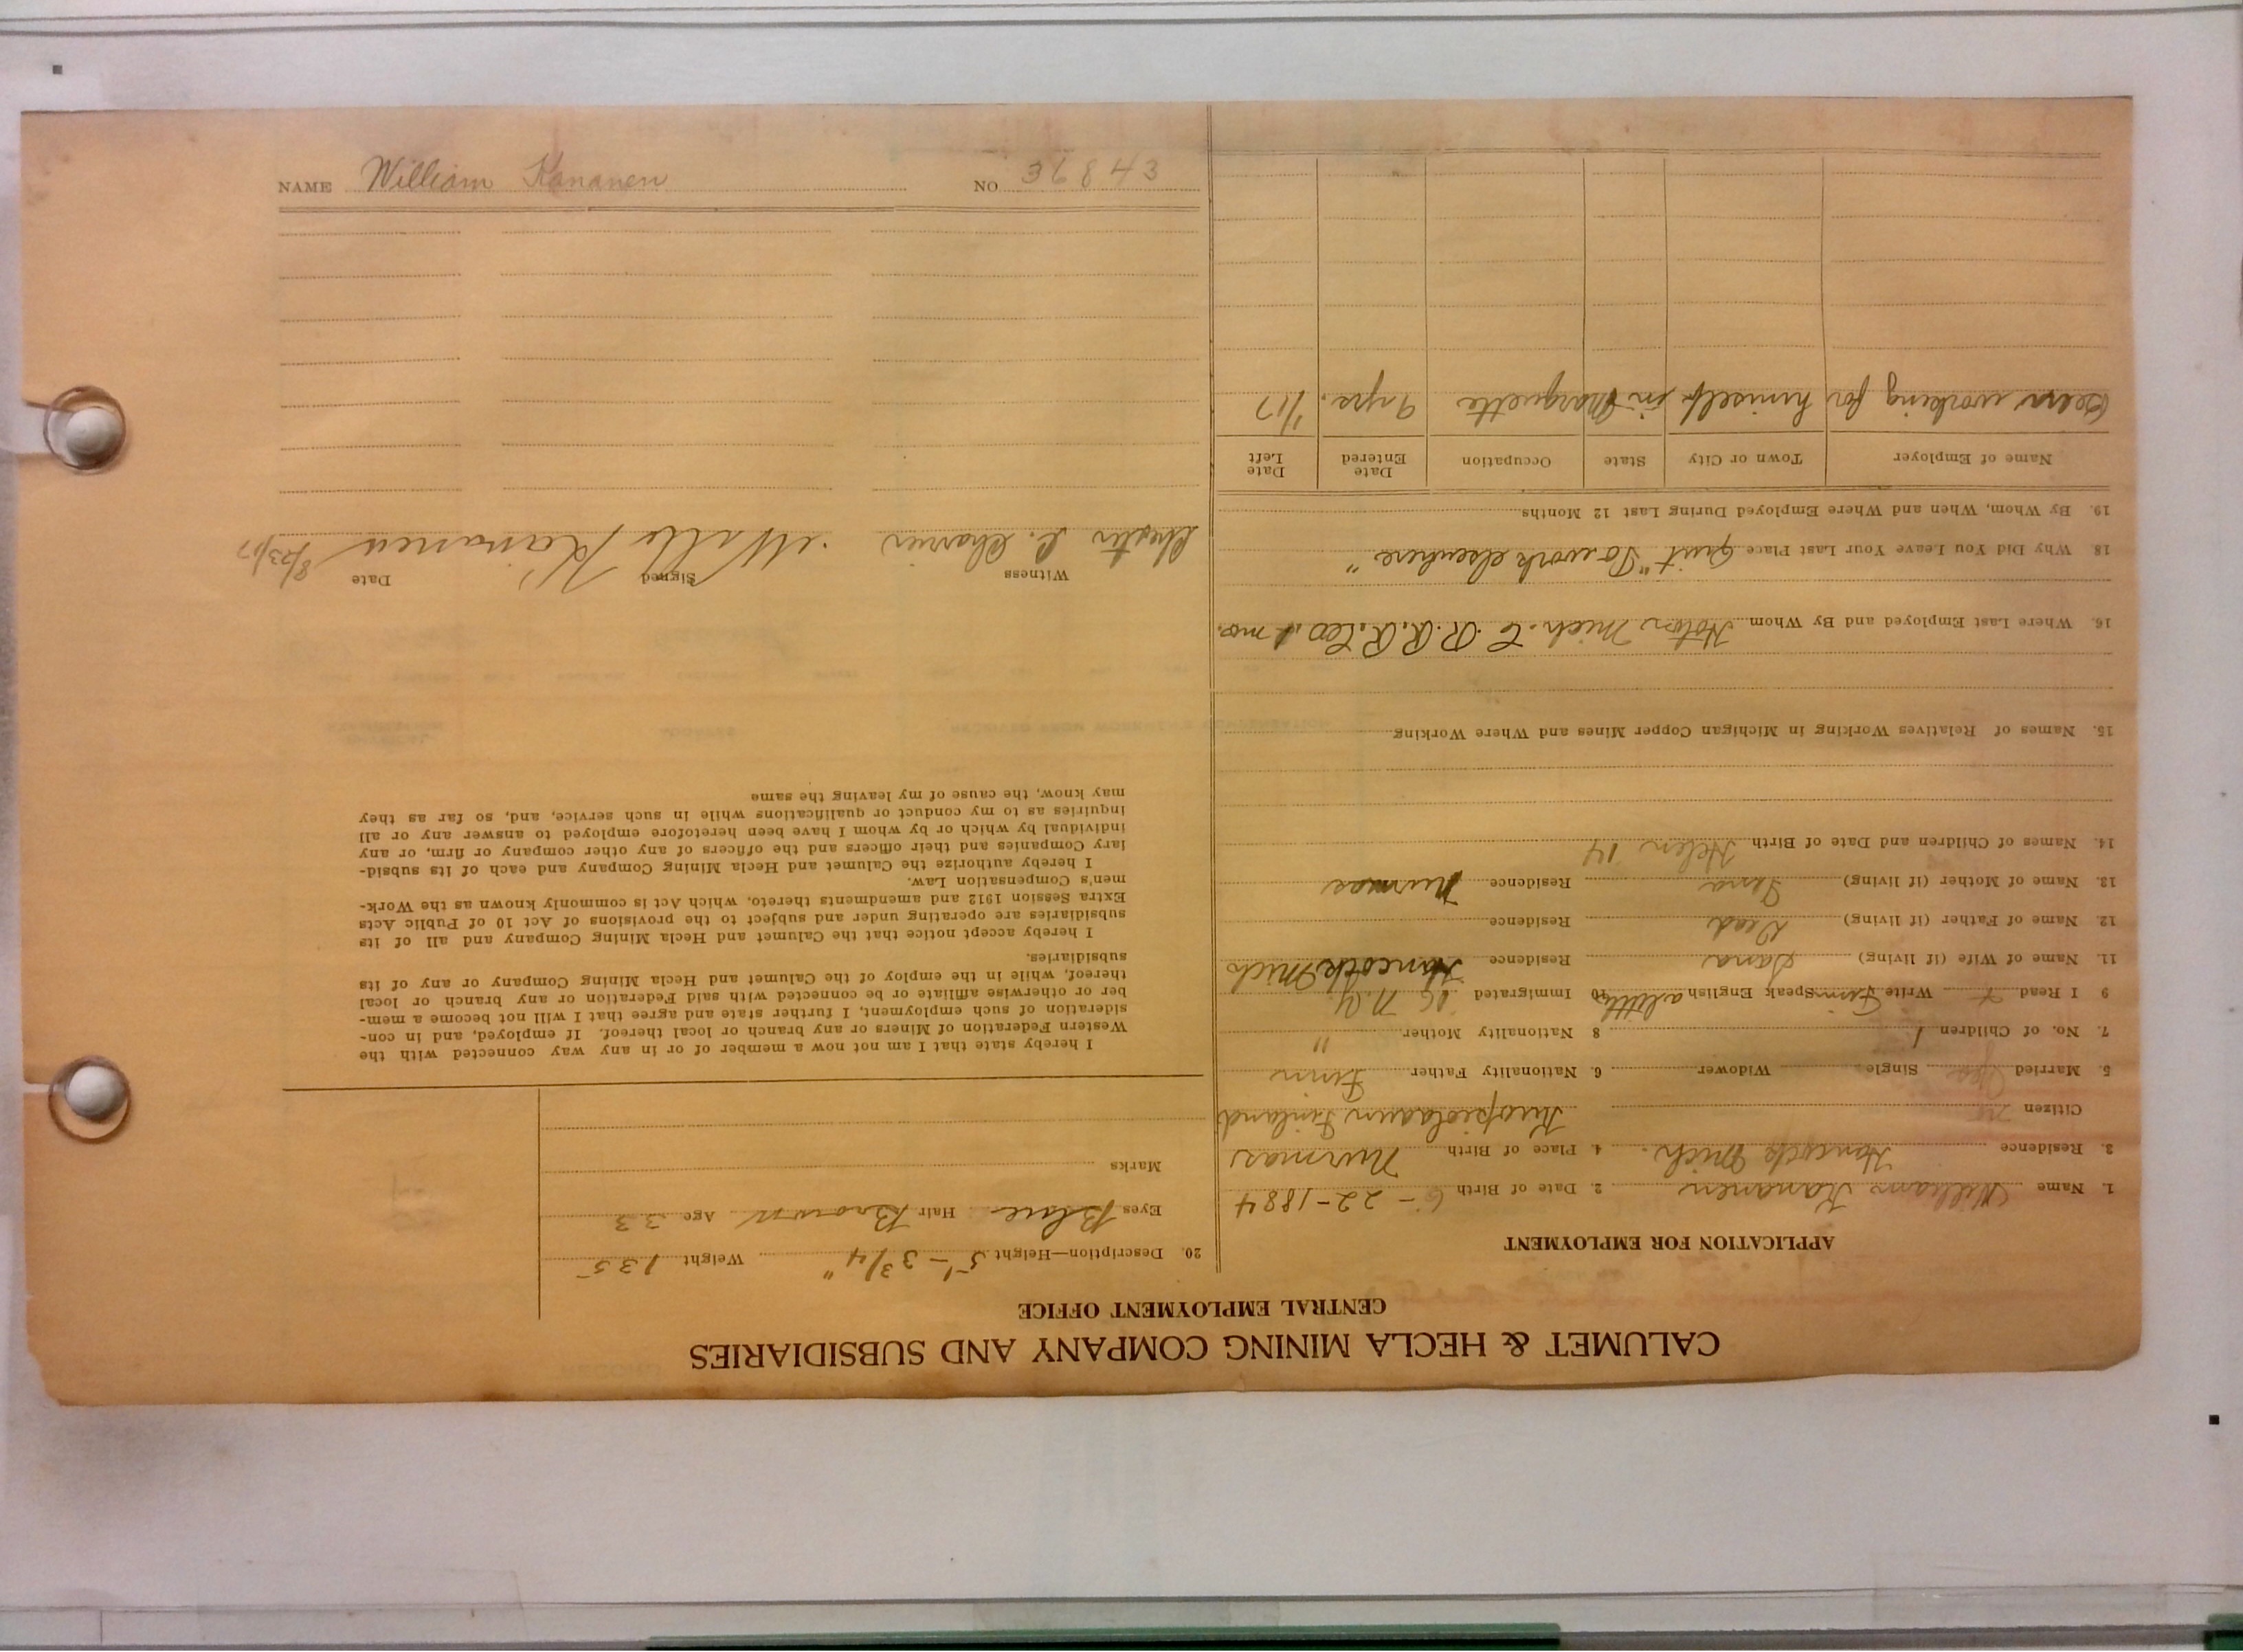 CALUMET & HECLA MINING COMPANY AND SUBSIDIARIES
CENTRAL EMPLOYMENT OFFICE
APPLICATION FOR EMPLOYMENT
1. Name William Kananen 2. Date of Birth 6-22-1884
3. Residence Hancock Mich. 4. Place of Birth Nurmas
Citizen no Kuopiolaan Finland
5. Married Yes Single Widower 6. Nationality Father Finn
7. No. of Children 1 8 Nationality Mother "
9 I Read Write Finn Speak English a little 10 Immigrated N.Y.
11. Name of Wife (if living) Sana Residence Hancock Mich
12. Name of Father (if living) Dead Residence
13. Name of Mother (if living) Residence Nurmas
14. Names of Children and Date of Birth Helen 14
15. Names of Relatives Working in Michigan Copper Mines and Where Working
16. Where Last Employed and By Whom Mich. C. R. R.R. Co. 1 mo.
18. Why Did You Leave Your Last Place Quit "To work elsewhere"
19. By Whom, When and Where Employed During Last 12 Months
Name of Employer Town or City State Occupation Date Entered Date Left
Been working for himself in Marquette yrs. 1/17
20. Description—Height 5'-3 3/4" Weight 135
Eyes Blue Hair Brown Age 33
Marks
I hereby state that I am not now a member of or in any way connected with the
Western Federation of Miners or any branch or local thereof. If employed, and in con-
sideration of such employment, I further state and agree that I will not become a mem-
ber or otherwise affiliate or be connected with said Federation or any branch or local
thereof, while in the employ of the Calumet and Hecla Mining Company or any of its
subsidiaries.
I hereby accept notice that the Calumet and Hecla Mining Company and all of its
subsidiaries are operating under and subject to the provisions of Act 10 of Public Acts
Extra Session 1912 and amendments thereto, which Act is commonly known as the Work-
men's Compensation Law.
I hereby authorize the Calumet and Hecla Mining Company and each of its subsid-
iary Companies and their officers and the officers of any other company or firm, or any
individual by which or by whom I have been heretofore employed to answer any or all
inquiries as to my conduct or qualifications while in such service, and, so far as they
may know, the cause of my leaving the same
Date Signed Witness
8/23/17 Wille Kananen Chester C.
NAME William Kananen NO 36843